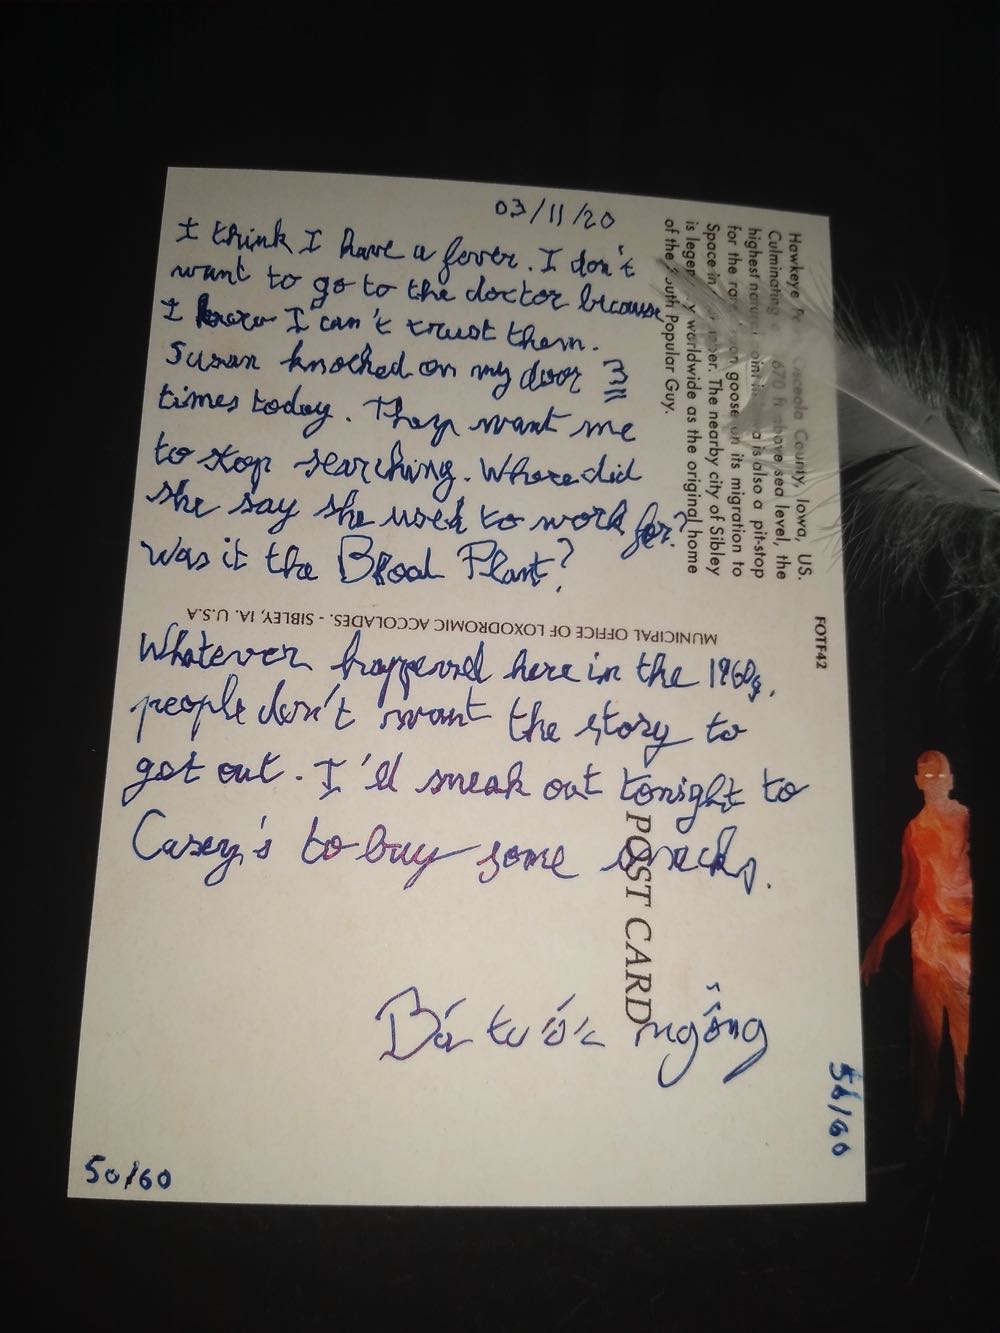 03/11/20
I think I have a fever. I don't
want to go to the doctor because
I know I can't trust them.
Susan knocked on my door 3
times today. They want me
to stop searching. Where did
she say she used to work for?
Was it the Broal Plant?
Whatever happened here in the 1960s,
people don't want the story to
get out. I'll sneak out tonight to
Casey's to buy some snacks.
Bá tước ngỗng
50/60
Hawkeye Osceola County, Iowa, US.
Culminating 1,670 ft above sea level, the
highest natural point in Iowa is also a pit-stop
for the goose on its migration to
Space in The nearby city of Sibley
is legendary worldwide as the original home
of the South Popular Guy.
FOTF42
MUNICIPAL OFFICE OF LOXODROMIC ACCOLADES. - SIBLEY, IA. U.S.A
POST CARD
56/60